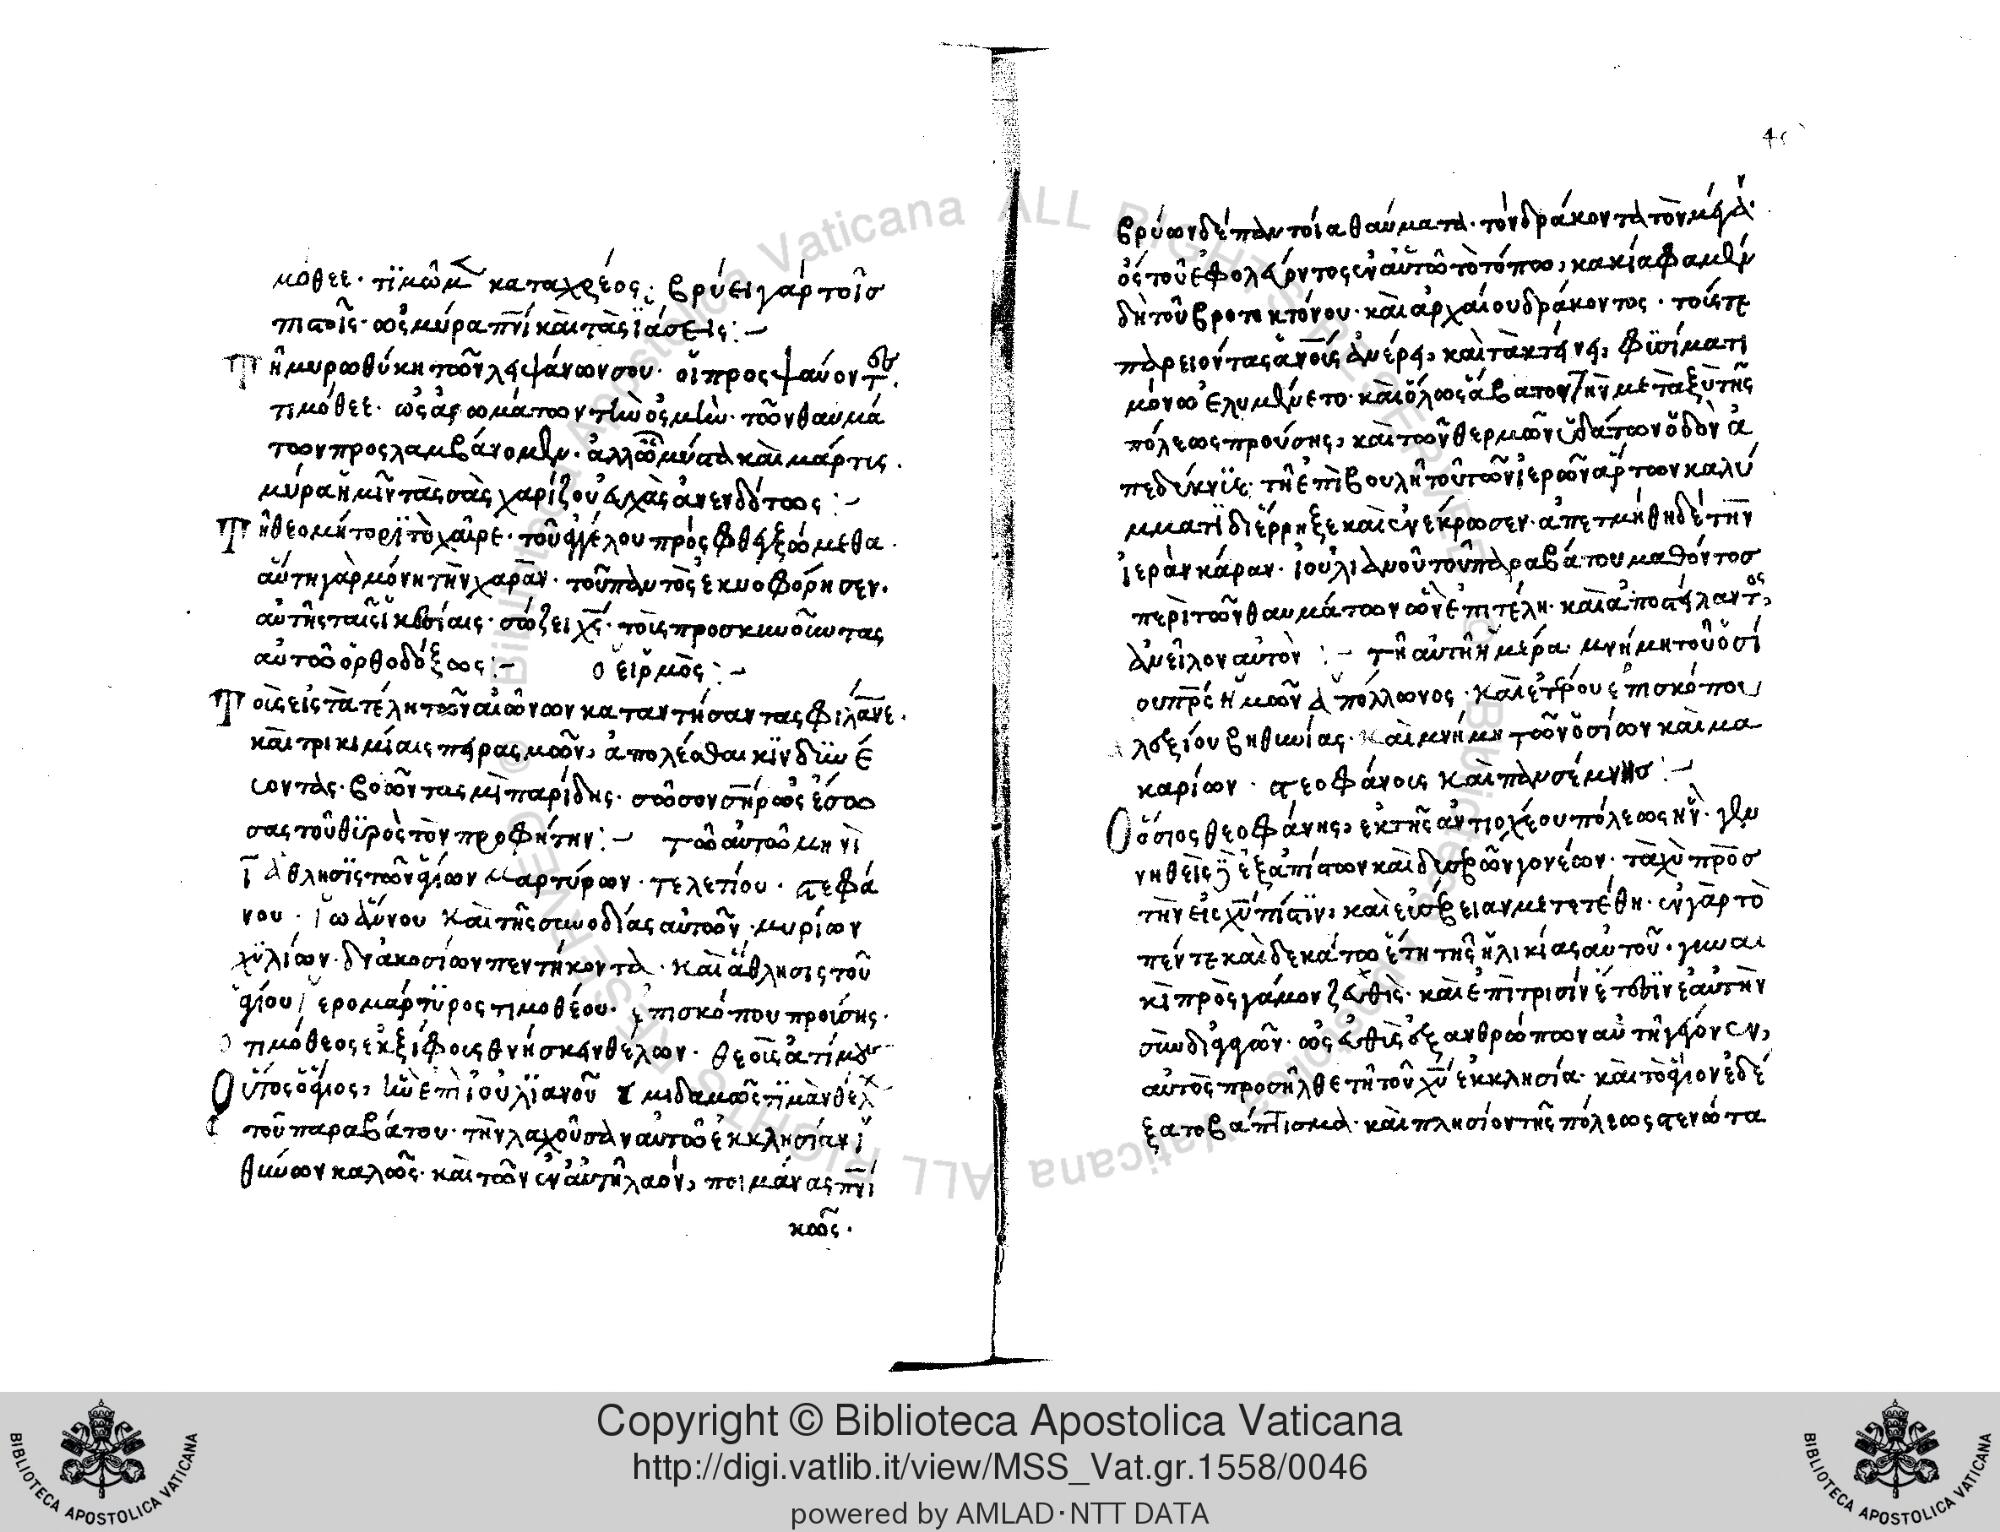 μόθεε· τϊμῶμ καταχρέος· βρύει γάρ τοῖσ
πιστοῖς· ὡς μύρα πνι καὶ τὰς ϊάσεις:~
Τῆ μυρωθύκη τῶν λειψάνων σου· οἵ προςψάυοντ
τιμόθεε· ὡς ἀρωμάτων τὴν ὀσμὴν· τῶν θαυμά
των προςλαμβάνομεν· ἀλλ ὡς μύστα καὶ μάρτις.
μύρα ἡμῖν τὰς σὰς χαρίζου εὐχὰς ἀνενδότως:~
Τῆ θεομήτορϊ τὸ χαῖρε· τοῦ ἀγγέλου προς φθεγξώμεθα·
αὕτη γὰρ μόνη τὴν χαρὰν· τοῦ παντὸς ἐκυοφόρησεν·
αὐτῆς ταῖς ἱκεσίαις· σώζει χς· τοὶς προσκυνοῦντας
αὐτῶ ὀρθοδόξως:~ ὁ εἱρμὸς:~
Τοὶς εἰς τὰ τέλη τῶν αἰώνων καταντήσαντας φιλάνε·
καὶ τρικιμίαις πειρασμῶν, ἀπολέσθαι κϊνδϊν έ
οντας· βοῶντας μὶ παρίδης· σῶσον σηρ ὡς ἔσω
σας τοῦ θϊρὸς τὸν προφήτην:~ τῶ αὐτῶ μηνὶ
ϊ ἄθλησϊς τῶν ἁγίων μαρτύρων· τελετίου· στεφά
νου· ἰωάννου καὶ τῆς συνοδίας αὐτῶν· μυρίων
χϋλίων· διακοσίων πεντήκοντα· καὶ ἄθλησις τοῦ
ἁγίου ἱερομάρτϋρος τιμοθέου· ἐπισκόπου προίσης·
τιμόθεος ἐκ ξίφοις θνήσκειν θέλων· θεοῖς ἀτίμους
Οὗτος ὁ ἅγιος, ἦν ἐπὶ ἰουλϊανοῦ μιδαμῶς τϊμὰν θέλ
τοῦ παραβάτου· τὴν λαχοῦσαν αὐτῶ ἐκκλησίαν ϊ
θινύων καλῶς· καὶ τῶν ἐν ἀυτῆ λαόν, ποιμάνας πνι
κῶς·
βρύων δὲ παντοία θαύματα· τὸν δράκοντα τὸν μέγαν
ὁς τοῦ ἐφολεύοντος ἐν ἀυτῶ τὸ τόπω, κακία φαμὲν
δὴ τοῦ βροτοκτόνου· καὶ ἀρχαίου δράκοντος· τοίς τε
παρειόντας ἀνοις ἀνέρει, καὶ τὰ κτήνει, φϊσίματι
μόνω ἐλυμένετο· καὶ ὅλως ἄβατον ἦν μεταξὺ τῆς
πόλεως προύσης, καὶ τῶν θερμῶν ὑδάτων ὅδὸν ἀ
πεδείκνϊε· τῆ ἐπιβουλῆ τοῦ τῶν ἱερῶν ἄρτων καλύ
μματϊ διέρρηξε καὶ ἐνέκρωσεν· ἀπετμήθη δὲ τὴν
ἱερὰν κάραν· ἰουλιανοῦ τοῦ παραβάτου μαθόντοσ
περὶ τῶν θαυμάτων ὧν ἐπιτέλη· καὶ ἀποστείλαντος,
ἀνεῖλον αὐτὸν:~ τῆ αὐτῆ ἡμέρα· μνήμη τοῦ ὁσί
ου πρς ἡμῶν ἀπόλλωνος· καὶ ἑτέρου ἐπισκόπου
λοξίου βηθινίας· καὶ μνήμη τῶν ὁσίων καὶ μα
καρίων· θεοφάνοις καὶ πανσέμνησ:~
Ο ὅσιος θεοφάνης, ἐκ τῆς ἀντιοχέου πόλεως ἦν· γεν
νηθεὶς ἐξ ἀπίστων καὶ δυσεβῶν γονέων· ταχὺ πρὸσ
τὴν εἰς χν πίστϊν, καὶ εὐσέβειαν μετετέθη· ἐν γὰρ τὸ
πέντε καὶ δεκάτω ἔτη τῆς ἡλικίας αὐτοῦ· γυναι
κὶ πρὸς γάμον ζευχθὶς· καὶ ἐπὶ τρισὶν ἔτοσϊν ἑαυτὴν
σὺν διάγων· ὡς εὐθὶς ἐξ ἀνθρώπων αὐτὴ γέγονεν,
αὐτὸς προσῆλθε τῆ τοῦ χυ ἐκκλησία· καὶ τὸ ἅγιον ἐδέ
ξατο βάπτισμα· καὶ πλησίον τῆς πόλεως στενώτα
Copyright © Biblioteca Apostolica Vaticana
http://digi.vatlib.it/view/MSS_Vat.gr.1558/0046
powered by AMLAD·NTT DATA
BIBLIOTECA APOSTOLICA VATICANA
BIBLIOTECA APOSTOLICA VATICANA